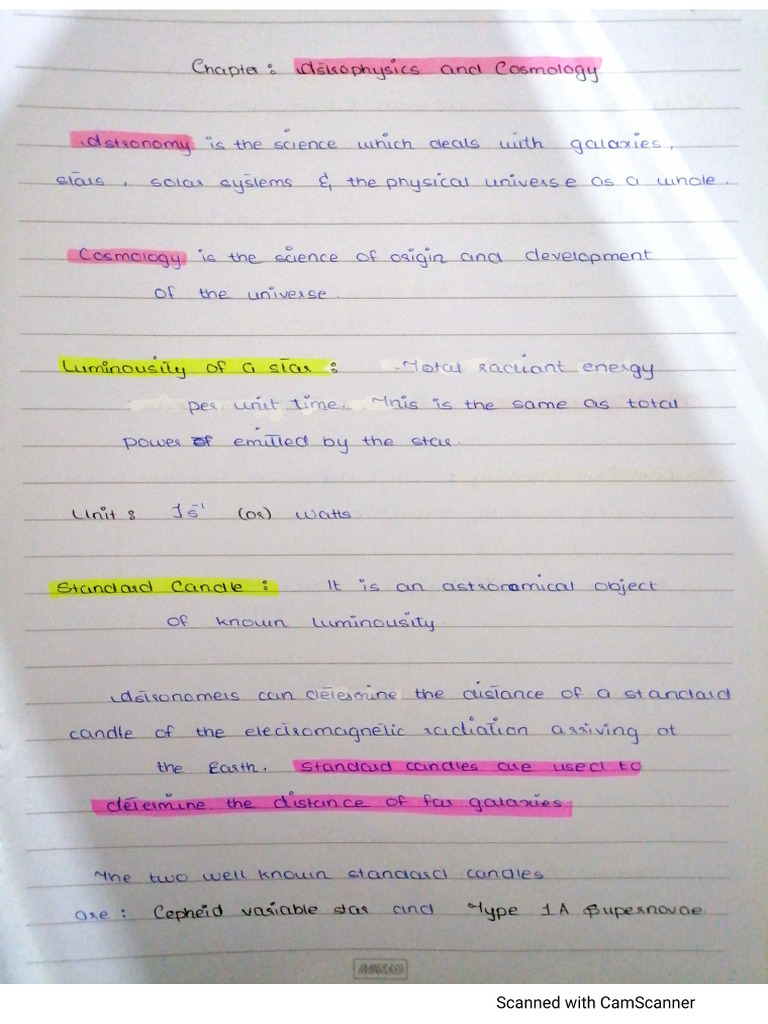 Chapter: Astrophysics and Cosmology
Astronomy is the science which deals with galaxies,
stars, solar systems & the physical universe as a whole.
Cosmology is the science of origin and development
of the universe.
Luminousity of a star: Total radiant energy
per unit time. This is the same as total
power of emitted by the star.
Unit: Js⁻¹ (or) watts
Standard Candle: It is an astronomical object
of known luminousity
Astronomers can determine the distance of a standard
candle of the electromagnetic radiation arriving at
the Earth. Standard candles are used to
determine the distance of far galaxies.
The two well known standard candles
are: Cepheid variable star and Type 1A Supernovae.
Scanned with CamScanner